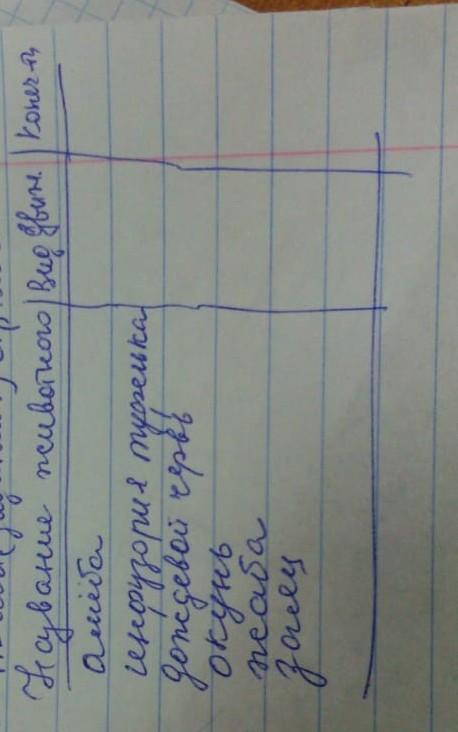 Название животного | Вид движ. | Конеч-ти
амёба
инфузория туфелька
дождевой червь
окунь
жаба
заяц